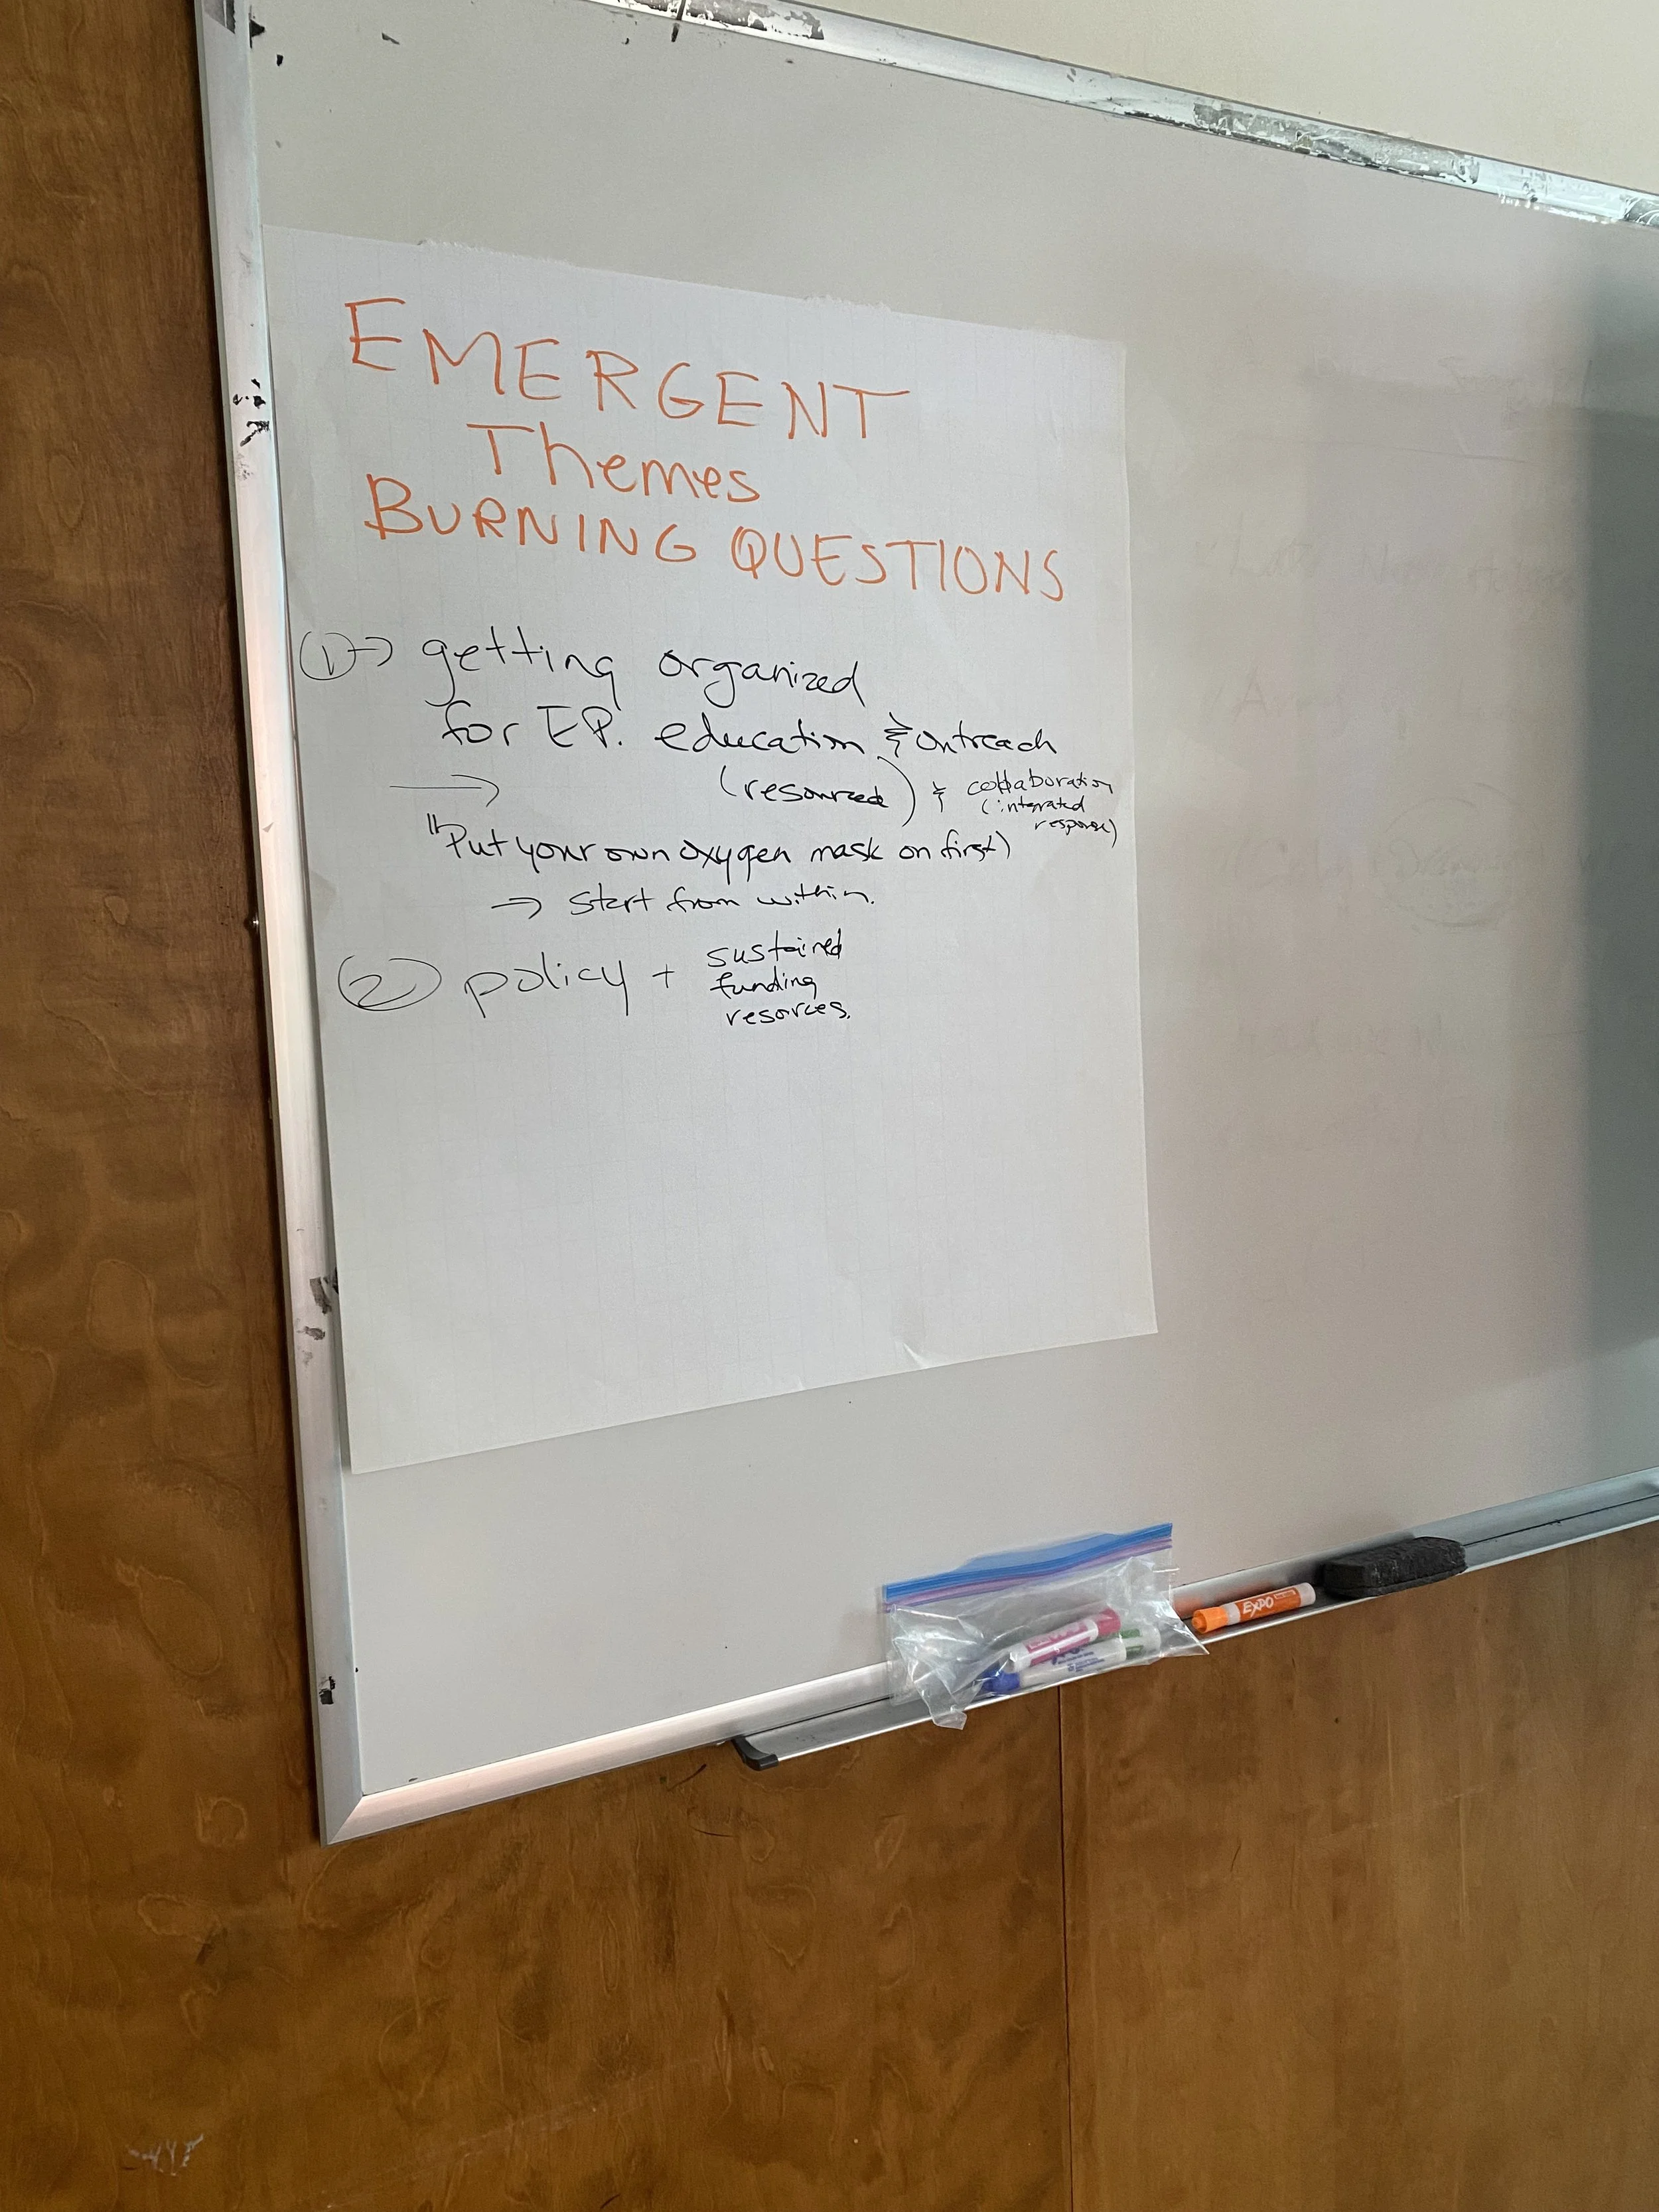 EMERGENT
Themes
BURNING QUESTIONS
① → getting organized
for E.P. education & outreach
→ (resourced) & collaboration
(integrated
response)
"Put your own oxygen mask on first)
→ start from within.
② policy + sustained
funding
resorces.
EXPO